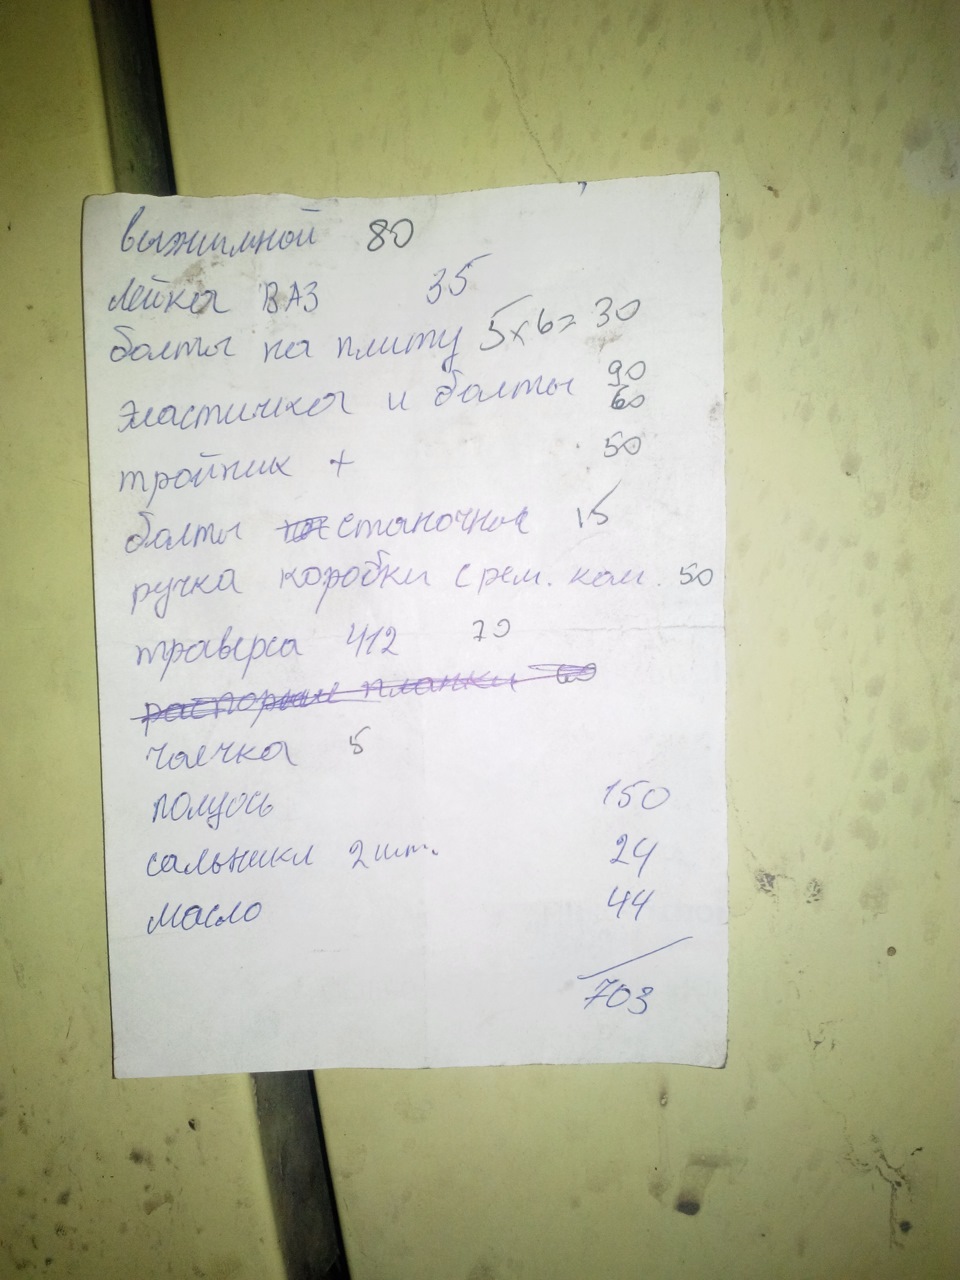 выжимной 80
лейка ВАЗ 35
болты на плиту 5х6= 30
эластичка и болты 90
60
тройник + 50
болты стяночные 15
ручка коробки с рем. ком. 50
траверса 412 70
распорные планки 60
чаечка 5
полуось 150
сальники 2 шт. 24
масло 44
703